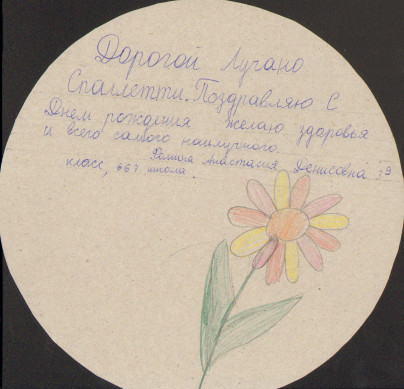 Дорогой Лучано
Спаллетти. Поздравляю С
Днем рождения желаю здоровья
и всего самого наилучшого.
Анастасия Денисовна
класс, 667 школа.